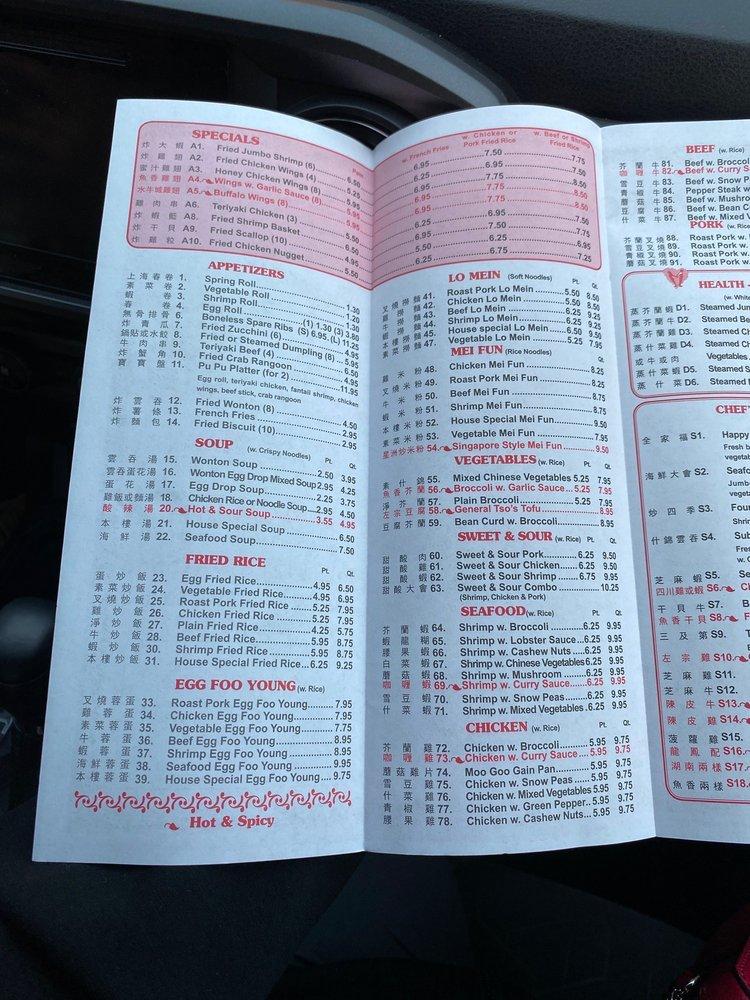 SPECIALS
Plain w. French Fries w. Chicken or Pork Fried Rice w. Beef or Shrimp Fried Rice
炸大蝦 A1. Fried Jumbo Shrimp (6)
炸雞翅 A2. Fried Chicken Wings (4)
蜜汁雞翅 A3. Honey Chicken Wings (8)
魚香雞翅 A4. Wings w. Garlic Sauce (8)
水牛城雞翅 A5. Buffalo Wings (8)
雞肉串 A6. Teriyaki Chicken (3)
炸蝦籃 A8. Fried Shrimp Basket
炸干貝 A9. Fried Scallop (10)
炸雞粒 A10. Fried Chicken Nugget
APPETIZERS
上海春卷 1. Spring Roll
素菜卷 2. Vegetable Roll
蝦卷 3. Shrimp Roll
春卷 4. Egg Roll
無骨排骨 6. Boneless Spare Ribs (S) 6.95 (L) 11.25
炸青瓜 7. Fried Zucchini (6)
鍋貼或水餃 8. Fried or Steamed Dumpling (8)
牛肉串 9. Teriyaki Beef (4)
炸蟹角 10. Fried Crab Rangoon
寶寶盤 11. Pu Pu Platter (for 2) 11.95
Egg roll, teriyaki chicken, fantail shrimp, chicken
wings, beef stick, crab rangoon
炸雲吞 12. Fried Wonton (8) 4.50
炸薯條 13. French Fries 2.95
炸麵包 14. Fried Biscuit (10) 2.95
SOUP (w. Crispy Noodles) Pt. Qt.
雲吞湯 15. Wonton Soup 2.50 3.95
雲吞蛋花湯 16. Wonton Egg Drop Mixed Soup 2.95 4.25
蛋花湯 17. Egg Drop Soup 2.25 3.75
雞飯或麵湯 18. Chicken Rice or Noodle Soup 2.95 4.50
酸辣湯 20. Hot & Sour Soup 3.55 4.95
本樓湯 21. House Special Soup 6.50
海鮮湯 22. Seafood Soup 7.50
FRIED RICE Pt. Qt.
蛋炒飯 23. Egg Fried Rice 4.95 6.50
素菜炒飯 24. Vegetable Fried Rice 4.95 6.95
叉燒炒飯 25. Roast Pork Fried Rice 5.25 7.95
雞炒飯 26. Chicken Fried Rice 5.25 7.95
淨炒飯 27. Plain Fried Rice 4.25 5.75
牛炒飯 28. Beef Fried Rice 5.95 8.75
蝦炒飯 30. Shrimp Fried Rice 5.95 8.75
本樓炒飯 31. House Special Fried Rice 6.25 9.25
EGG FOO YOUNG (w. Rice)
叉燒蓉蛋 33. Roast Pork Egg Foo Young 7.95
雞蓉蛋 34. Chicken Egg Foo Young 7.95
素菜蓉蛋 35. Vegetable Egg Foo Young 7.75
牛蓉蛋 36. Beef Egg Foo Young 8.95
蝦蓉蛋 37. Shrimp Egg Foo Young 8.95
海鮮蓉蛋 38. Seafood Egg Foo Young 9.75
本樓蓉蛋 39. House Special Egg Foo Young 9.75
Hot & Spicy
LO MEIN (Soft Noodles) Pt. Qt.
叉燒撈麵 41. Roast Pork Lo Mein 5.50 8.50
雞撈麵 42. Chicken Lo Mein 5.50 8.50
牛撈麵 43. Beef Lo Mein 6.25 9.50
蝦撈麵 44. Shrimp Lo Mein 6.25 9.50
本樓撈麵 45. House special Lo Mein 6.50 9.50
素菜撈麵 47. Vegetable Lo Mein 5.25 7.95
MEI FUN (Rice Noodles) Qt.
雞米粉 48. Chicken Mei Fun 8.25
叉燒米粉 49. Roast Pork Mei Fun 8.25
牛米粉 50. Beef Mei Fun 8.75
蝦米粉 51. Shrimp Mei Fun 8.75
本樓米粉 52. House Special Mei Fun 9.50
素菜米粉 53. Vegetable Mei Fun 7.95
星洲炒米粉 54. Singapore Style Mei Fun 9.50
VEGETABLES (w. Rice) Pt. Qt.
素什錦 55. Mixed Chinese Vegetables 5.25 7.95
魚香芥蘭 56. Broccoli w. Garlic Sauce 5.25 7.95
淨芥蘭 57. Plain Broccoli 5.25 7.95
左宗豆腐 58. General Tso's Tofu 8.95
豆腐芥蘭 59. Bean Curd w. Broccoli 8.95
SWEET & SOUR (w. Rice) Pt. Qt.
甜酸肉 60. Sweet & Sour Pork 6.25 9.50
甜酸雞 61. Sweet & Sour Chicken 6.25 9.50
甜酸蝦 62. Sweet & Sour Shrimp 6.75 9.95
甜酸大會 63. Sweet & Sour Combo 10.25
(Shrimp, Chicken & Pork)
SEAFOOD (w. Rice) Pt. Qt.
芥蘭蝦 64. Shrimp w. Broccoli 6.25 9.95
蝦龍糊 65. Shrimp w. Lobster Sauce 6.25 9.95
腰果蝦 66. Shrimp w. Cashew Nuts 6.25 9.95
白菜蝦 67. Shrimp w. Chinese Vegetables 6.25 9.95
蘑菇蝦 68. Shrimp w. Mushroom 6.25 9.95
咖喱蝦 69. Shrimp w. Curry Sauce 6.25 9.95
雪豆蝦 70. Shrimp w. Snow Peas 6.25 9.95
什菜蝦 71. Shrimp w. Mixed Vegetables 6.25 9.95
CHICKEN (w. Rice) Pt. Qt.
芥蘭雞 72. Chicken w. Broccoli 5.95 9.75
咖喱雞 73. Chicken w. Curry Sauce 5.95 9.75
蘑菇雞片 74. Moo Goo Gain Pan 5.95 9.75
雪豆雞 75. Chicken w. Snow Peas 5.95 9.75
什菜雞 76. Chicken w. Mixed Vegetables 5.95 9.75
青椒雞 77. Chicken w. Green Pepper 5.95 9.75
腰果雞 78. Chicken w. Cashew Nuts 5.95 9.75
BEEF (w. Rice)
芥蘭牛 81. Beef w. Broccoli
咖喱牛 82. Beef w. Curry S
雪豆牛 83. Beef w. Snow P
青椒牛 84. Pepper Steak w
蘑菇牛 85. Beef w. Mushro
豆腐牛 86. Beef w. Bean C
什菜牛 87. Beef w. Mixed V
PORK (w. Rice)
芥蘭叉燒 88. Roast Pork w.
雪豆叉燒 89. Roast Pork w.
青椒叉燒 90. Roast Pork w.
蘑菇叉燒 91. Roast Pork w.
HEALTH
(w. Whit
蒸芥蘭蝦 D1. Steamed Jum
蒸芥蘭牛 D2. Steamed B
蒸芥蘭雞 D3. Steamed Ch
蒸什菜雞 D4. Steamed C
或牛或肉 Vegetables
蒸什菜蝦 D5. Steamed S
蒸什菜 D6. Steamed
CHEF'
全家福 S1. Happy
Fresh b
vegetab
海鮮大會 S2. Seafo
Jumbo
veget
炒四季 S3. Four
什錦雲吞 S4. Sub
芝麻蝦 S5. Se
四川雞或蝦 S6.
干貝牛 S7.
魚香干貝 S8.
三及第 S9.
左宗雞 S10.
芝麻雞 S11.
芝麻牛 S12.
陳皮牛 S13.
陳皮雞 S14.
菠蘿雞 S15.
龍鳳配 S16.
湖南兩樣 S17.
魚香兩樣 S18.